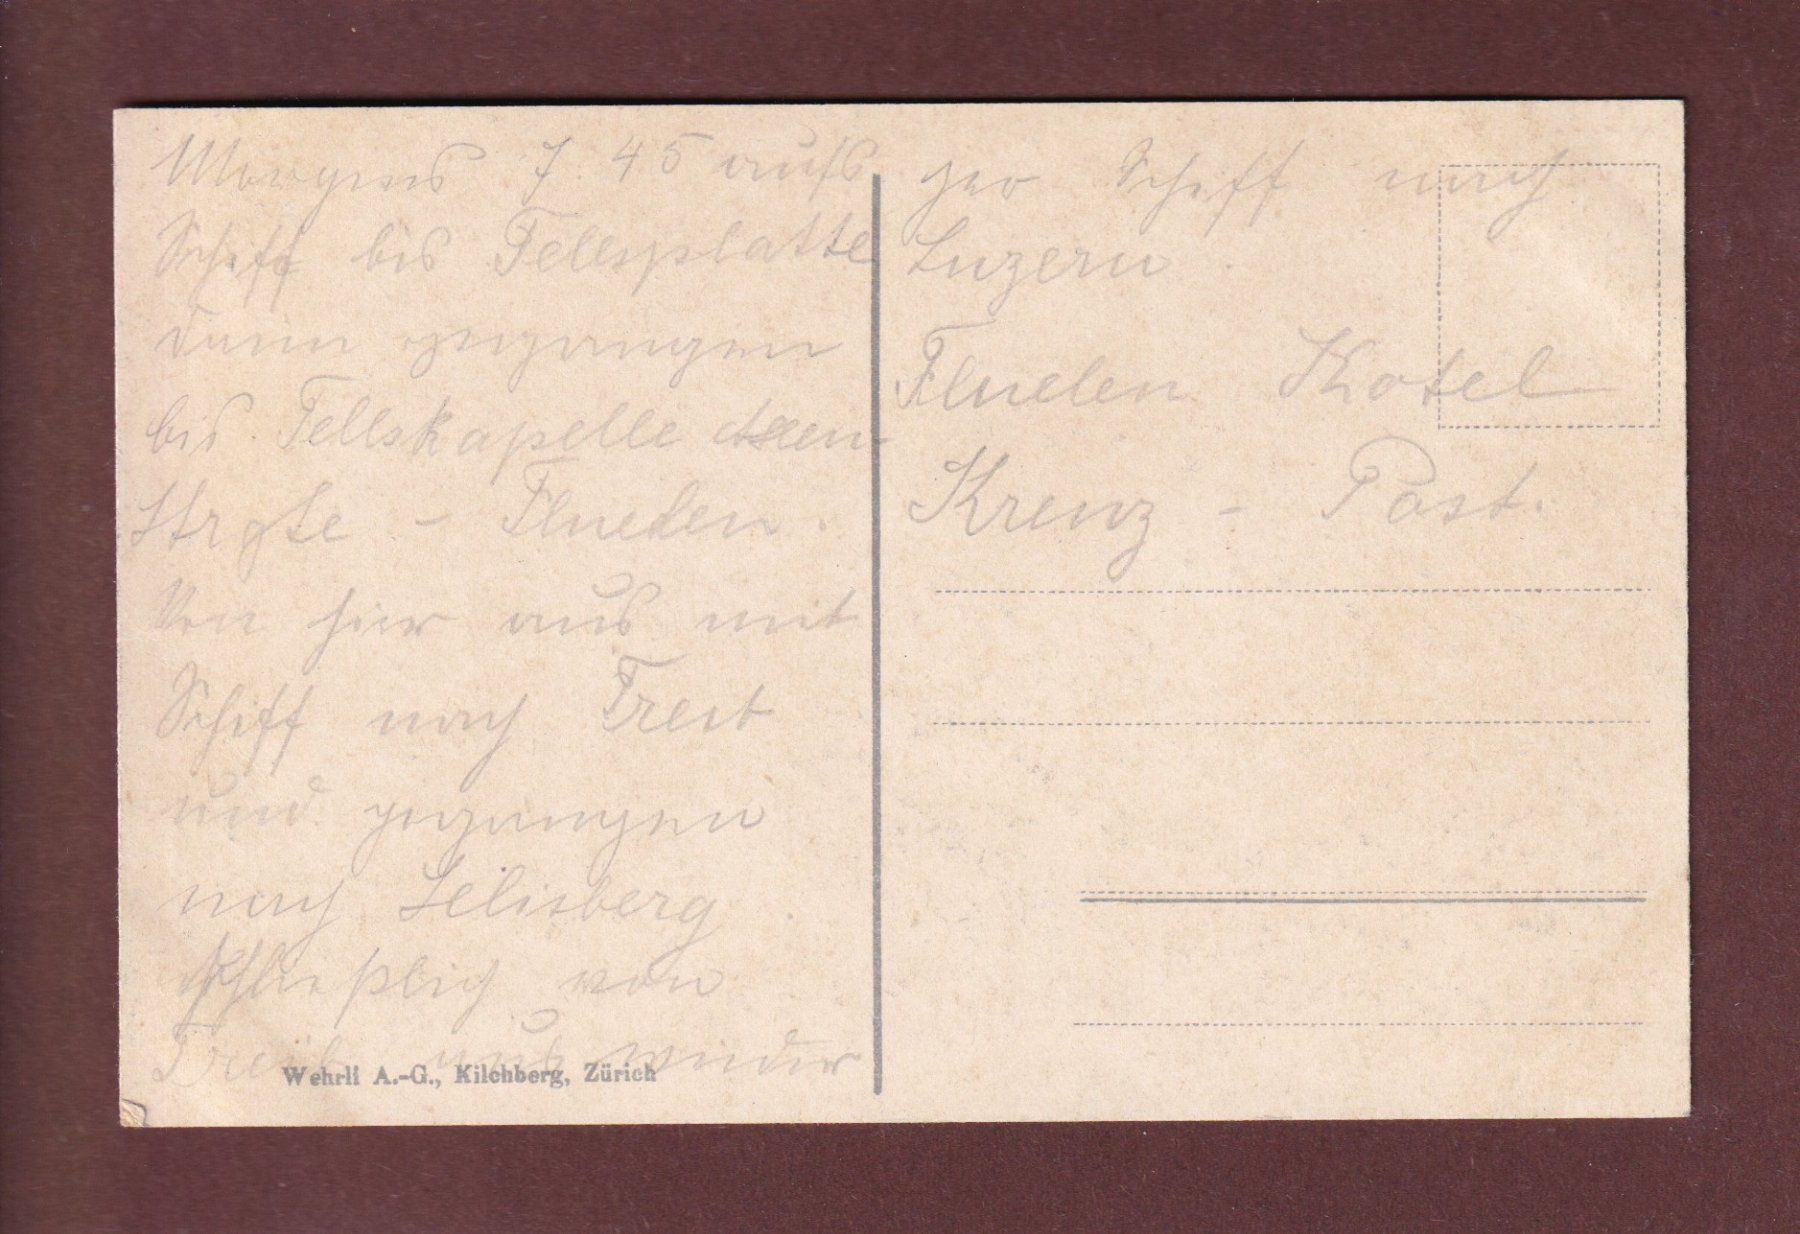 Morgens 7.45 aufs
Schiff bis Tellsplatte
dann gegangen
bis Tellskapelle
- Fluelen.
Von hier aus mit
Schiff nach Treib
und gegangen
nach Selisberg.
schließlich von
Treib aus wieder
Wehrli A.-G., Kilchberg, Zürich
per Schiff nach
Luzern.
Fluelen Hotel
Kreuz - Post.